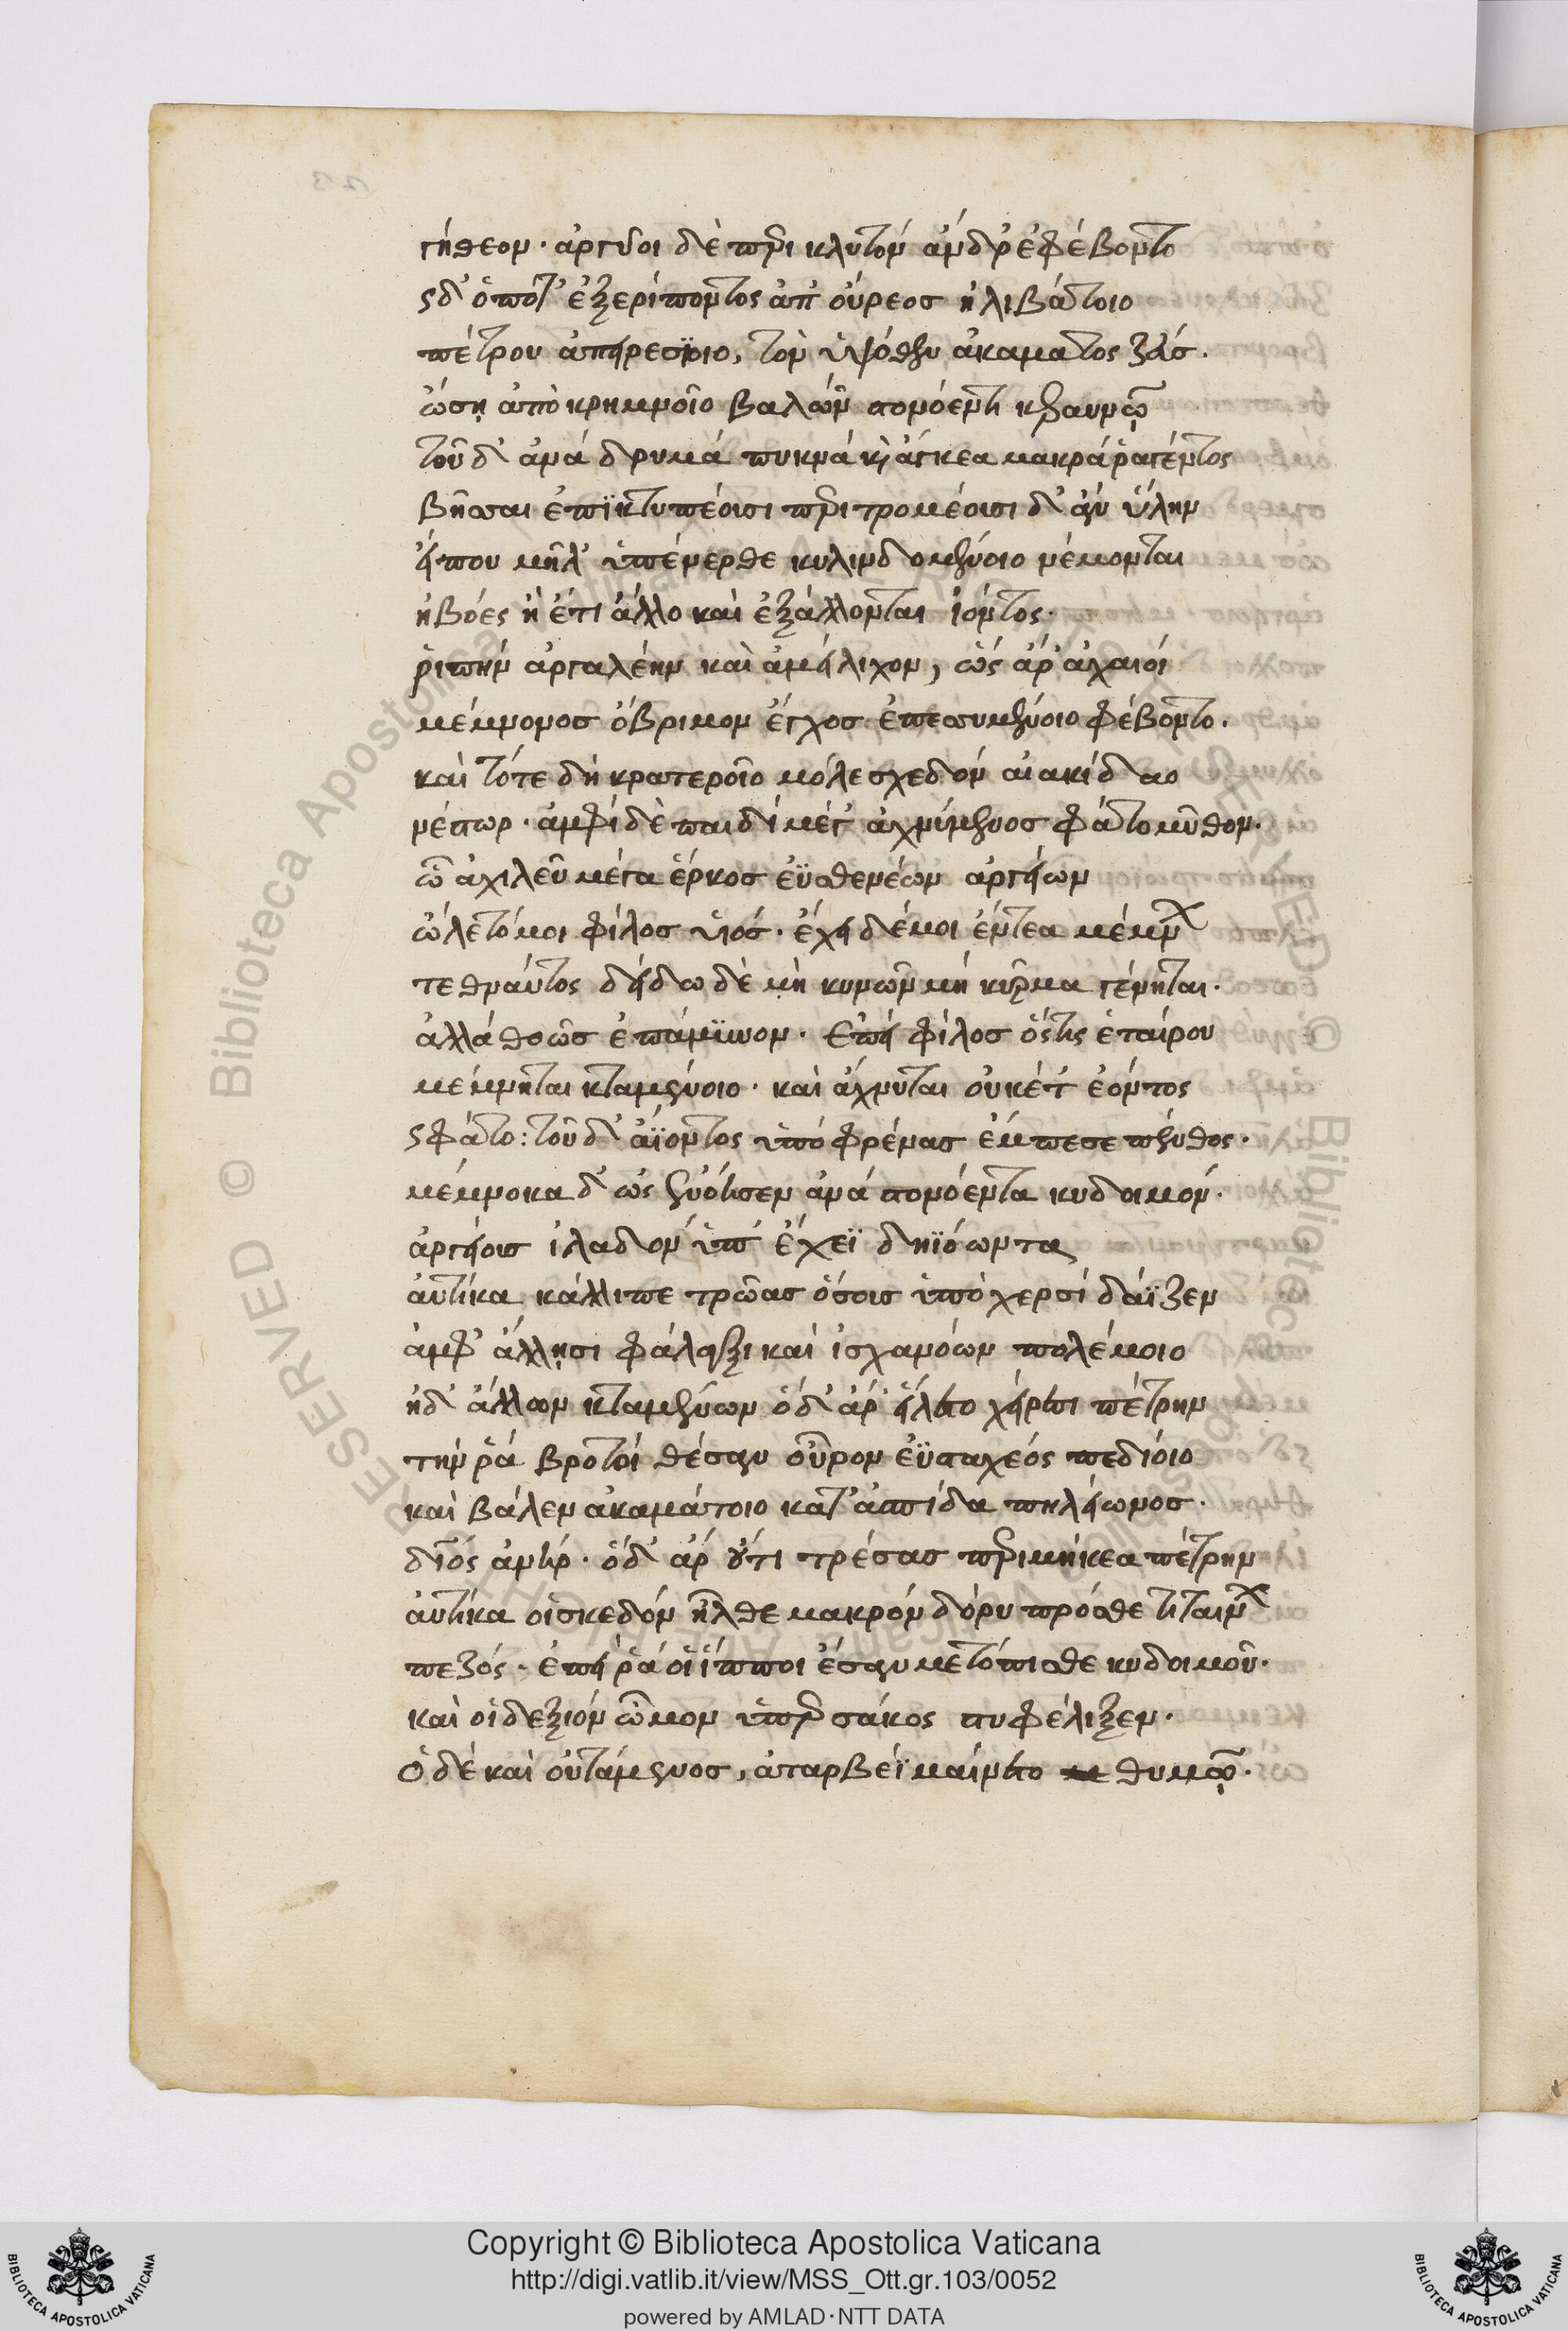 γήθεον· ἀργεῖοι δὲ περὶ κλυτὸν ἄνδρ' ἐφέβοντο
ς δ' ὁπότ' ἐξερίποντος ἀπ' οὔρεος ἠλιβάτοιο
πέτρου ἀπειρεσΐοιο, τὸν ὑψόθεν ἀκαματος ζεύς.
ὤσῃ ἀπὸ κρημνοῖο βαλών στονόεντι κεραυνῷ
τοῦ δ' ἀνά δρυμά πυκνά κὶ ἄγκεα μακρά ῥαγέντος
βῆσσαι ἐπϊκτυπέουσι περιτρομέουσι δ' ἀν ὕλην
εἴπου μῆλ' ὑπένερθε κυλινδομένοιο νέμονται
ἠ βόες ἠ ἔτι ἄλλο καὶ ἐξάλλονται ἰόντος·
ῥιπήν ἀργαλέην καὶ ἀμείλιχον, ὡς ἄρ' ἀχαιοί
μέμνονος ὄβριμον ἔγχος ἐπεσσυμένοιο φέβοντο.
καὶ τότε δὴ κρατεροῖο μόλε σχεδόν αἰακίδαο
νέστωρ· ἀμφί δὲ παιδί μέγ' ἀχνύμενος φάτο μῦθον.
ὦ ἀχιλεῦ μέγα ἕρκος ἐϋσθενέων ἀργείων
ὤλετό μοι φίλος υἱός. ἔχει δέ μοι ἔντεα μέμνων
τεθναότος δείδω δὲ μὴ κυνῶν μή κύρμα γένηται.
ἀλλά θοῶς ἐπάμϋνον. Επεί φίλος ὅς τις ἑταίρου
μέμνηται κταμένοιο. καὶ ἄχνυται οὐκέτ' ἐόντος
ς φάτο: τοῦ δ' ἀΐοντος ὑπό φρένας ἔμπεσε πένθος.
μέμνονα δ' ὡς ἐνόησεν ἀνά στονόεντα κυδοιμόν.
ἀργείους ἰλαδόν ὑπ' ἔγχεϊ δηϊόωντα
ἀυτίκα κάλλιπε τρῶας ὅσους ὑπὸ χερσί δάϊζεν
ἀμφ' ἄλλῃσι φάλαγξι καὶ ἰσχανόων πολέμοιο
ἠδ' ἄλλων κταμένων ὁ δ' ἄρ' εἵλετο χείρεσι πέτρην
τήν ῥά βροτοί θέσαν οὖρον ἐϋσταχεός πεδίοιο
καὶ βάλεν ἀκαμάτοιο κατ' ἀσπίδα πηλείωνος.
δῖος ἀνήρ. ὁ δ' ἄρ οὔτι τρέσας περιμήκεα πέτρην
ἀυτίκα οἱ σκεδόν ἦλθε μακρόν δόρυ πρόσθε τιταίνων
πεζός. ἐπεί ῥά οἱ ἵπποι ἔσαν μετόπισθε κυδοιμοῦ.
καὶ οἱ δεξιόν ὦμον ὑπὲρ σάκος στυφέλιξεν.
Ο δέ καὶ οὐτάμενος, ἀταρβέϊ μαίνετο θυμῷ.
Copyright © Biblioteca Apostolica Vaticana
http://digi.vatlib.it/view/MSS_Ott.gr.103/0052
powered by AMLAD·NTT DATA